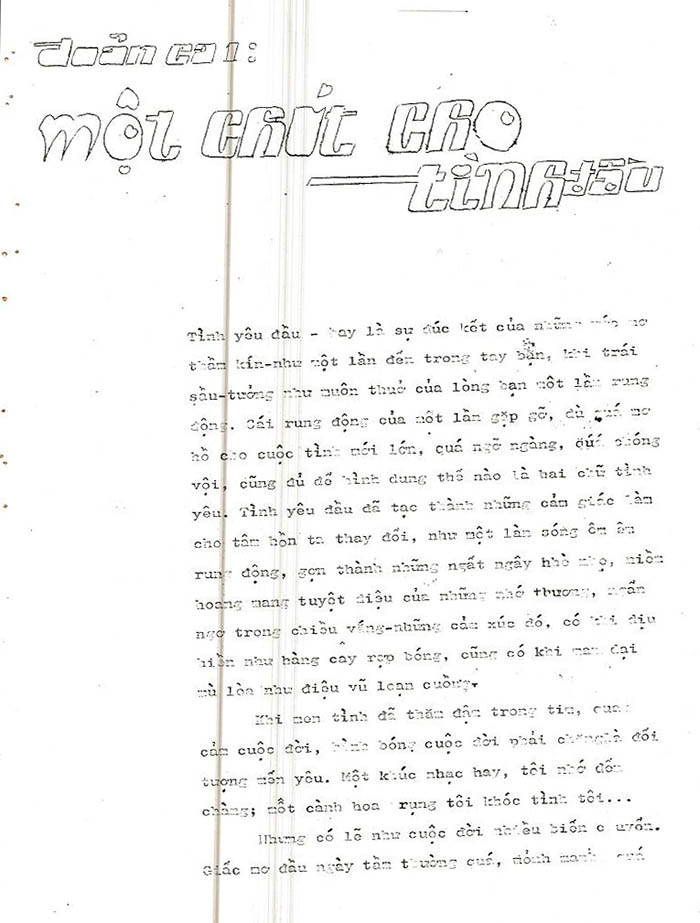 đoản ca 1:
một chút cho
tình đầu
Tình yêu đầu - hay là sự đúc kết của những mơ
thầm kín-như một lần đến trong tay bạn, khi trái
sầu-tưởng như muôn thuở của lòng bạn một lần rung
động. Cái rung động của một lần gặp gỡ, dù quá mơ
hồ cho cuộc tình mới lớn, quá ngỡ ngàng, quá chóng
vội, cũng đủ để hình dung thế nào là hai chữ tình
yêu. Tình yêu đầu đã tạc thành những cảm giác làm
cho tâm hồn ta thay đổi, như một làn sóng êm êm
rung động, gợn thành những ngất ngây nhè nhẹ, niềm
hoang mang tuyệt diệu của những nhớ thương, ngẩn
ngơ trong chiều vắng-những cảm xúc đó, có khi dịu
hiền như hàng cây rợp bóng, cũng có khi man dại
mù lòa như điệu vũ loạn cuồng.
Khi men tình đã thấm đậm trong tim,
cảm cuộc đời, hình bóng cuộc đời phải đối
tượng mến yêu. Một khúc nhạc hay, tôi nhớ đến
chàng; một cành hoa rụng tôi khóc tình tôi...
Nhưng có lẽ như cuộc đời nhiều biến
Giấc mơ đầu ngày tầm thường quá, mỏnh manh quá